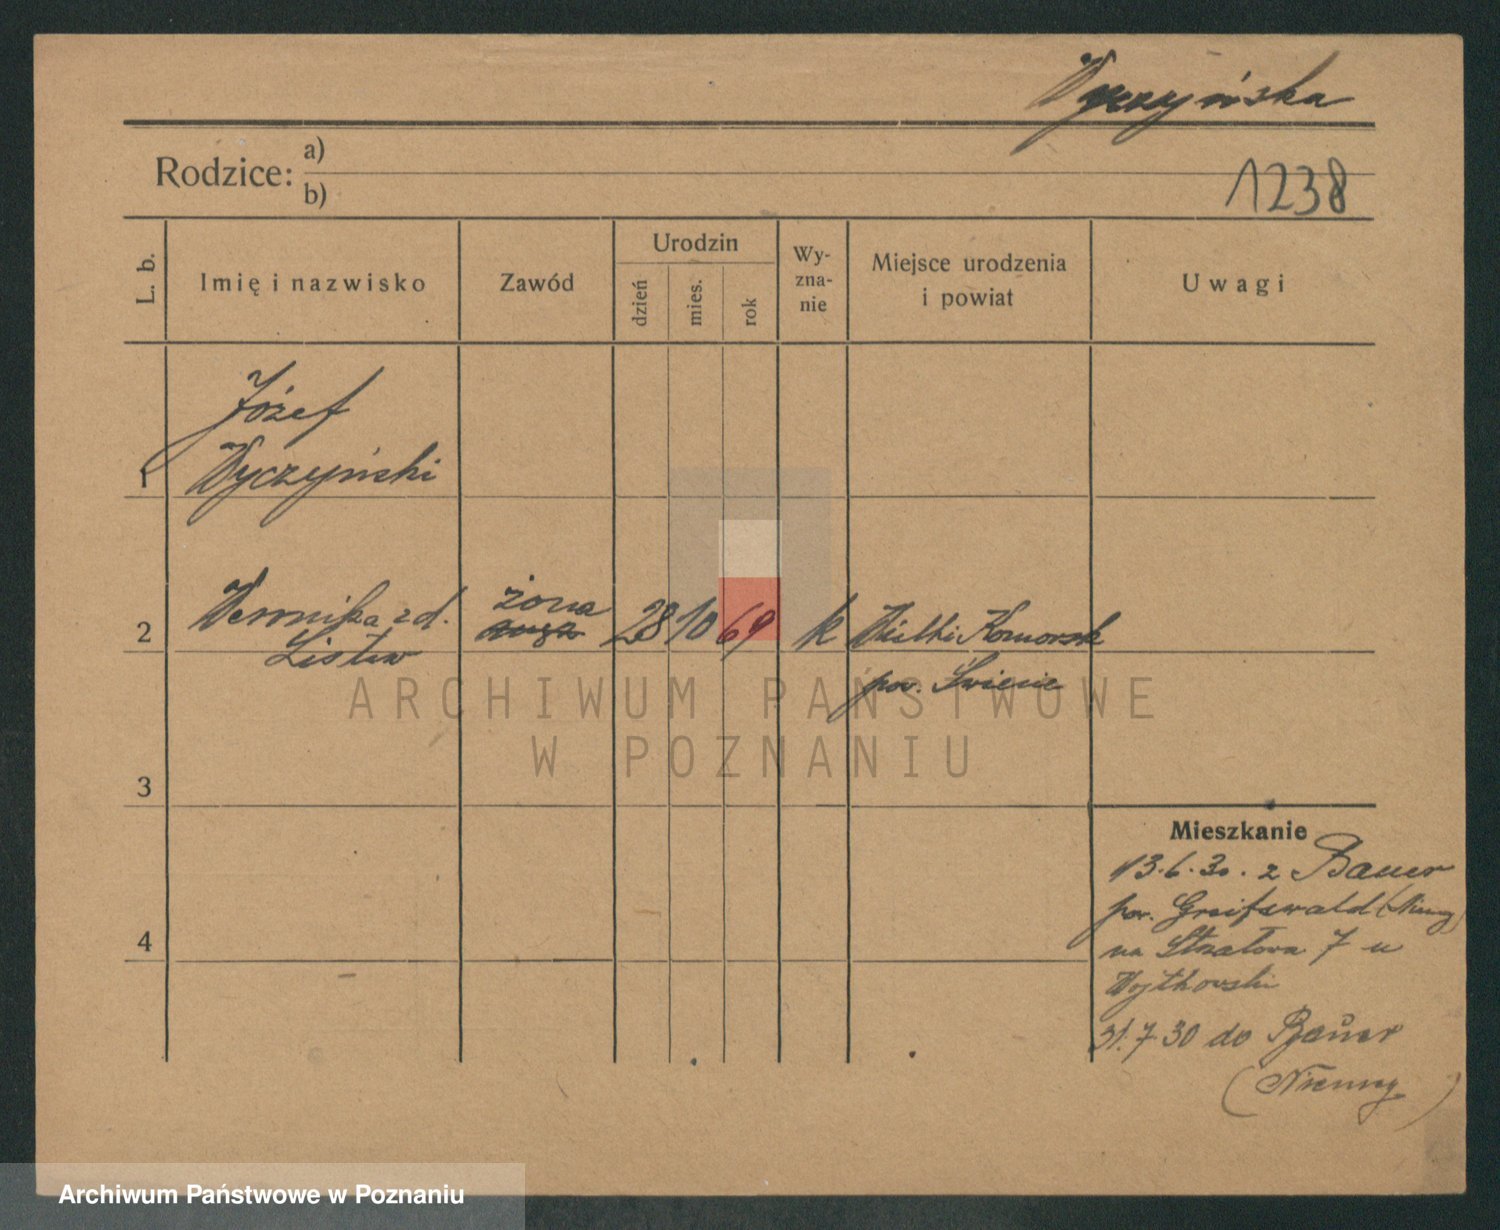 Wyczyńska
Rodzice: a)
b)
1238
L. b.
Imię i nazwisko
Zawód
Urodzin
dzień
mies.
rok
Wy-
zna-
nie
Miejsce urodzenia
i powiat
Uwagi
Józef
1 Wyczyński
2 Weronika zd. żona 28 10 69 k Wielki Komorsk
pow. Świecie
ARCHIWUM PAŃSTWOWE
W POZNANIU
3
Mieszkanie
13.6.30. z Bauer
pow. Greifswald (Niemcy)
4
na Strzałowa 7 u
Wojtkowski
31.7.30 do Bauer
(Niemcy)
Archiwum Państwowe w Poznaniu